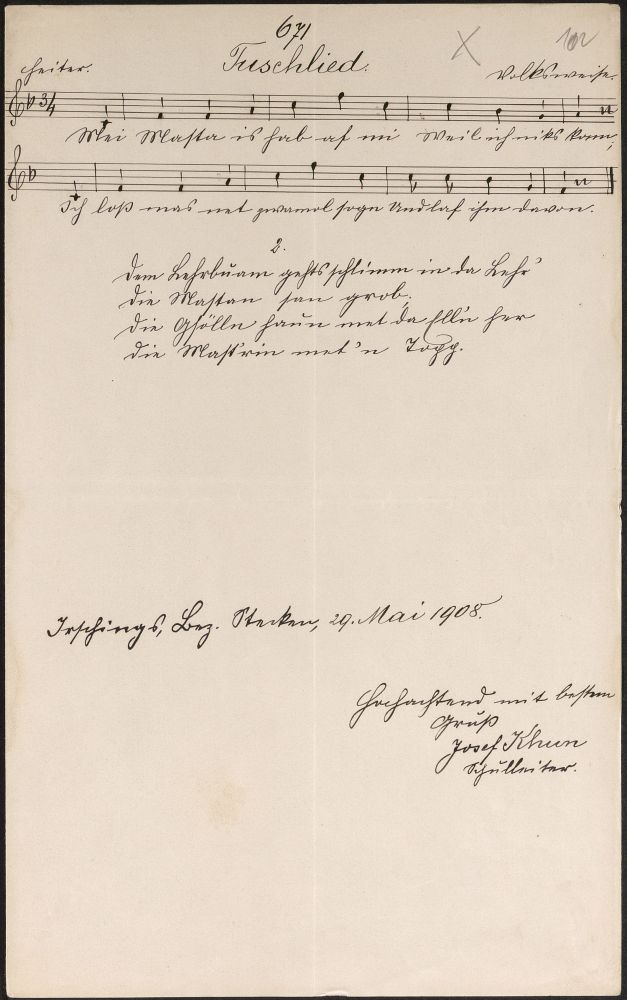 671
102
Tuschlied.
Heiter.
Volksweise.
Mei Masta is hab af mi Weil ich niks kann,
Ich loß mas net zwamol sogn Und laf ihm davon.
2.
Dem Lehrbuam gehts schlimm in da Lehr'
Die Mastan san grob,
Die Gsölln haun met da Elln her
Die Mast'rin met'n Topp.
Irschings, Bez. Stecken, 29. Mai 1908.
Hochachtend mit bestem
Gruß
Josef Khun
Schulleiter.